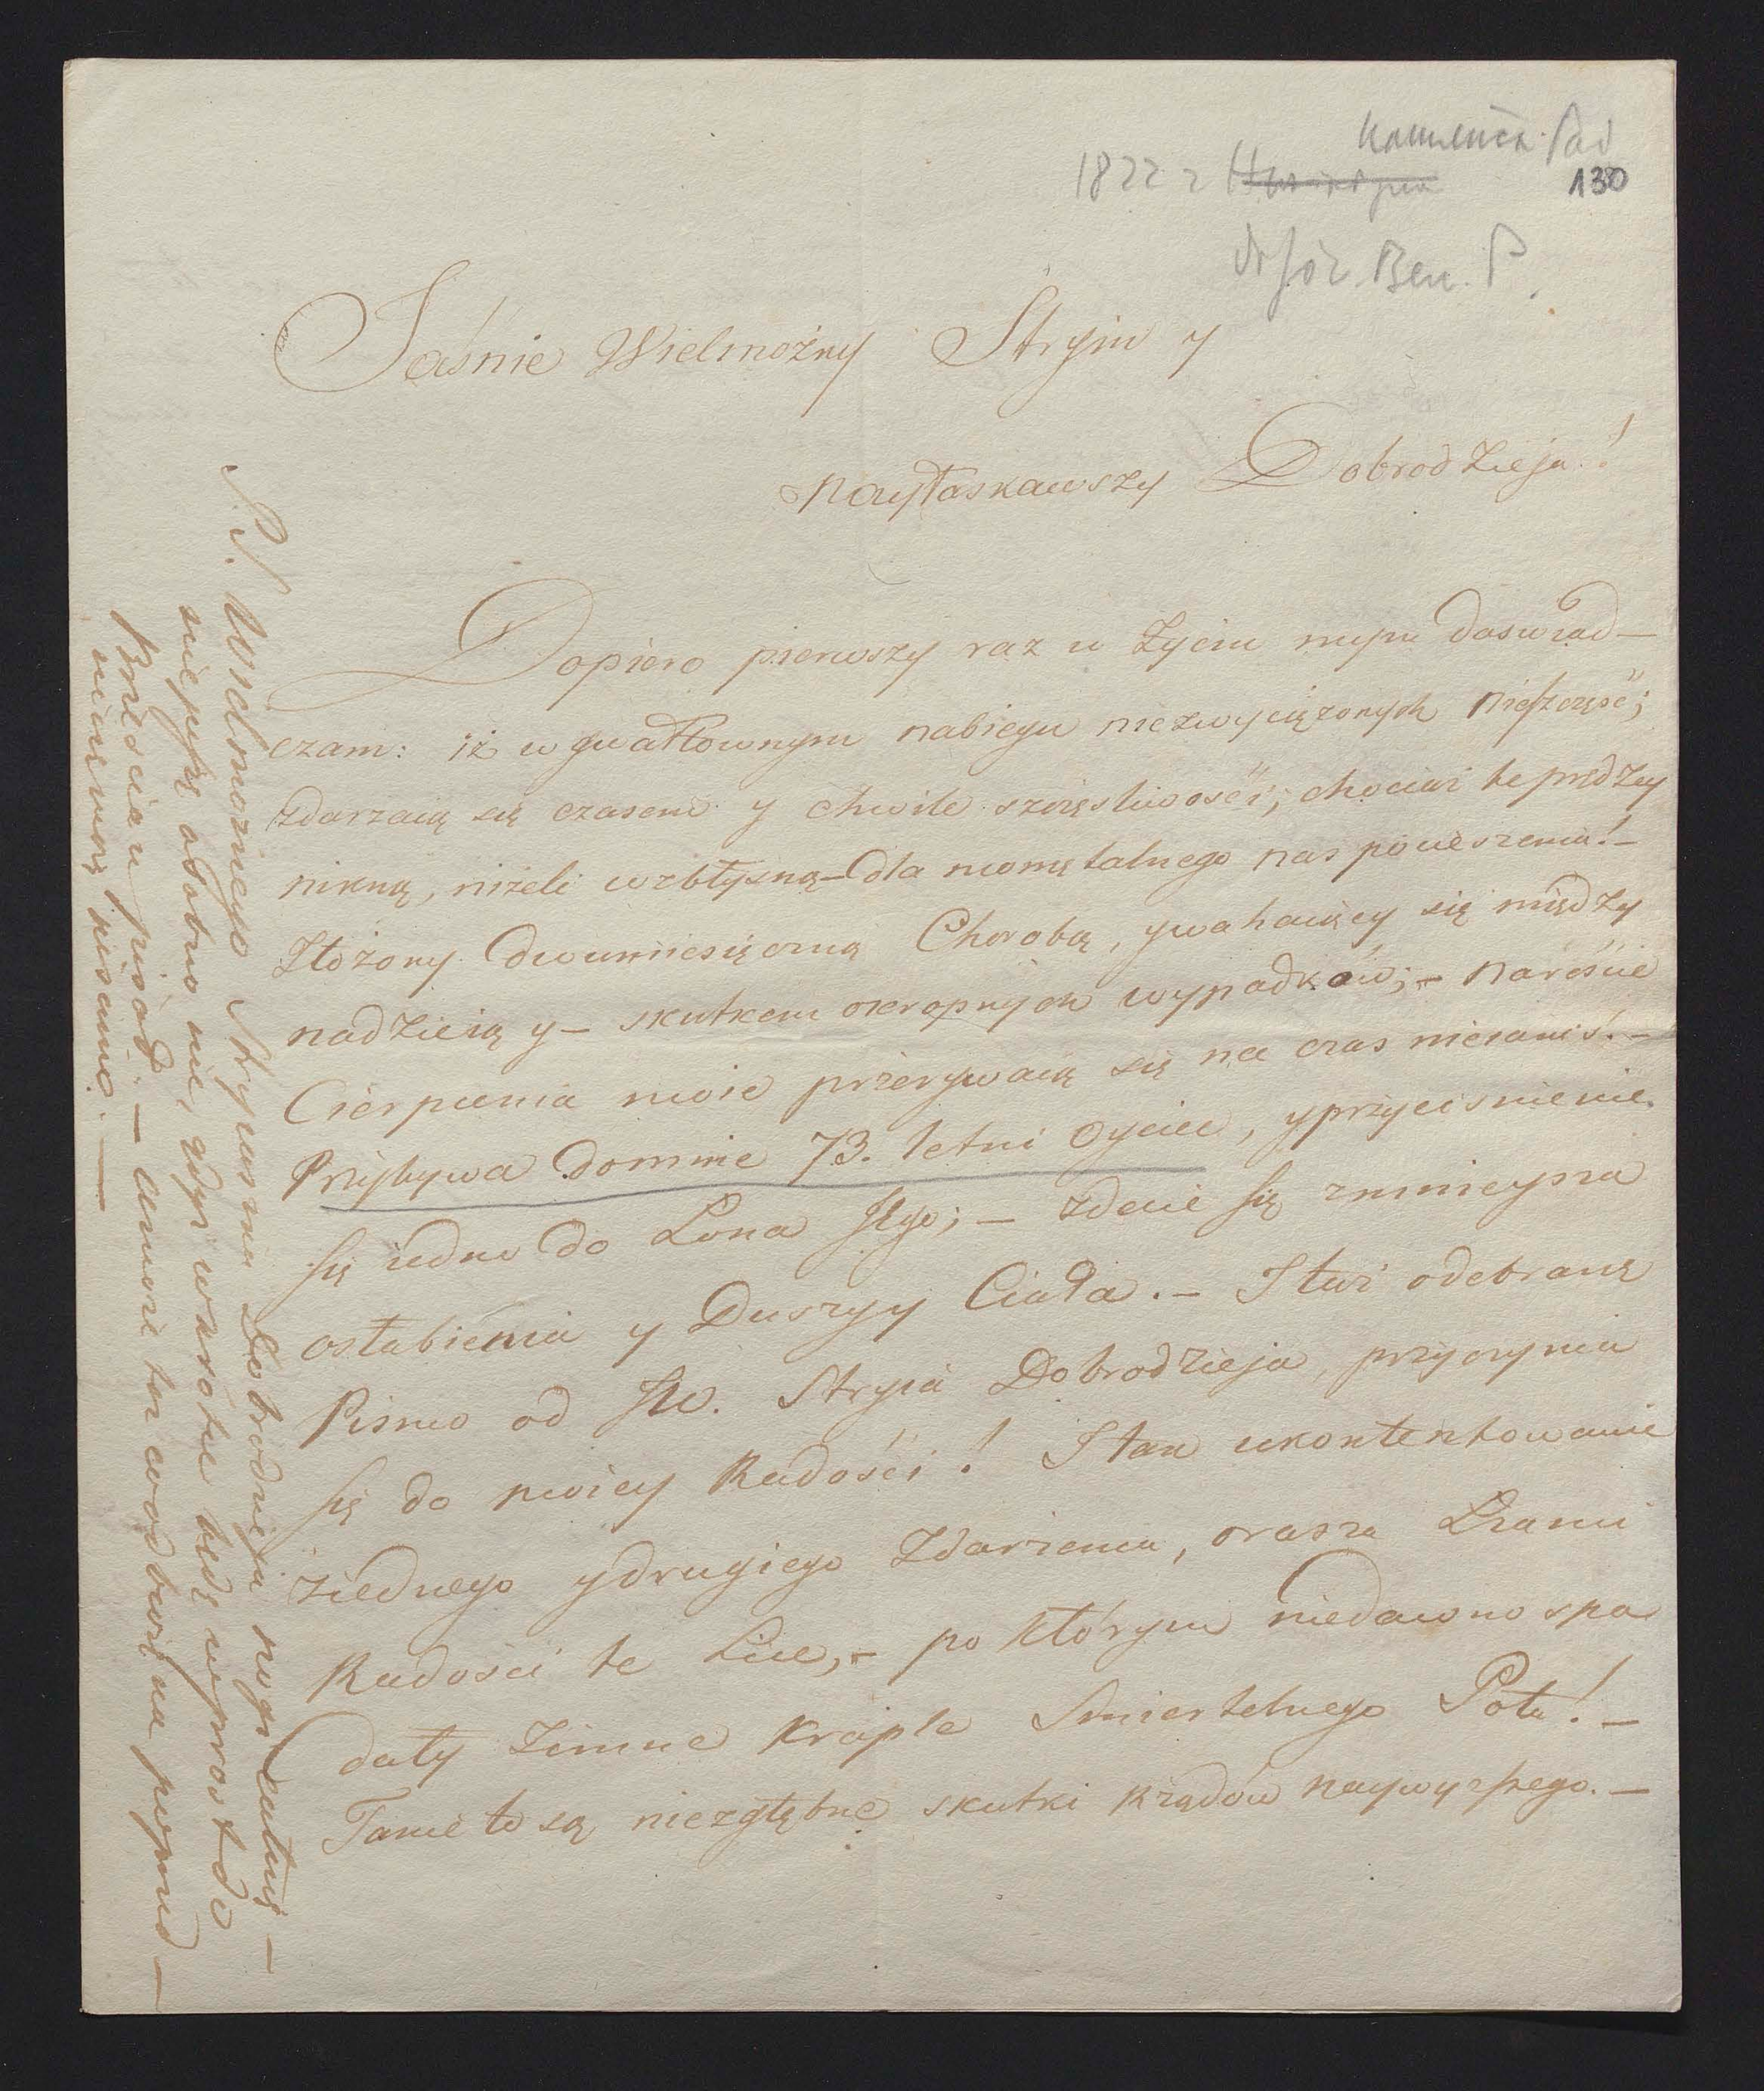 Kamieniec Pod
1822 r
130
Dr Józ. Ben. P.
Jaśnie Wielmożny Stryiu y
Nayłaskawszy Dobrodzieja!
Dopiero pierwszy raz w Życiu moim Doswiad-
czam: iż w gwałtownym nabiegu niezwyciężonych nieszczęść;
zdarzaią się czasem y chwile szczęsliwości, chociaż te prędzey
nikną, niżeli wzbłysną - dla momętalnego nas pocieszenia! -
Złożony Dwumiesięczną Chorobą, ywahaiącey się między
nadzieią y - skutkem okropnych wypadków; - nareście
Cierpienia moie przerywaią się na czas nieiakiś. -
Przybywa Domnie 73. letni Oyciec, y przyciśnienie
się iedne do Łona Jego; - zdaie się zmnieysza
osłabienia y Duszy y Ciała. - I tuż odebrane
Pismo od JW. Stryia Dobrodzieja, przyczynia
się do moiey Radości! I tak ukontentowanie
ziednego ydrugiego Zdarzenia, orasza Łzami
Radości te Lice, - po którym niedawno spa
dały zimne krople Smiertelnego Potu! -
Takie to są niezgłębne skutki Rządów naywyższego. -
P. S. Wielmoznego Stryiaszka Dobrodzieja nogi całuię -
niepiszę osobno nie, gdyż wkrótce będę wprost do
Brześcia pisać. -
pisano. -